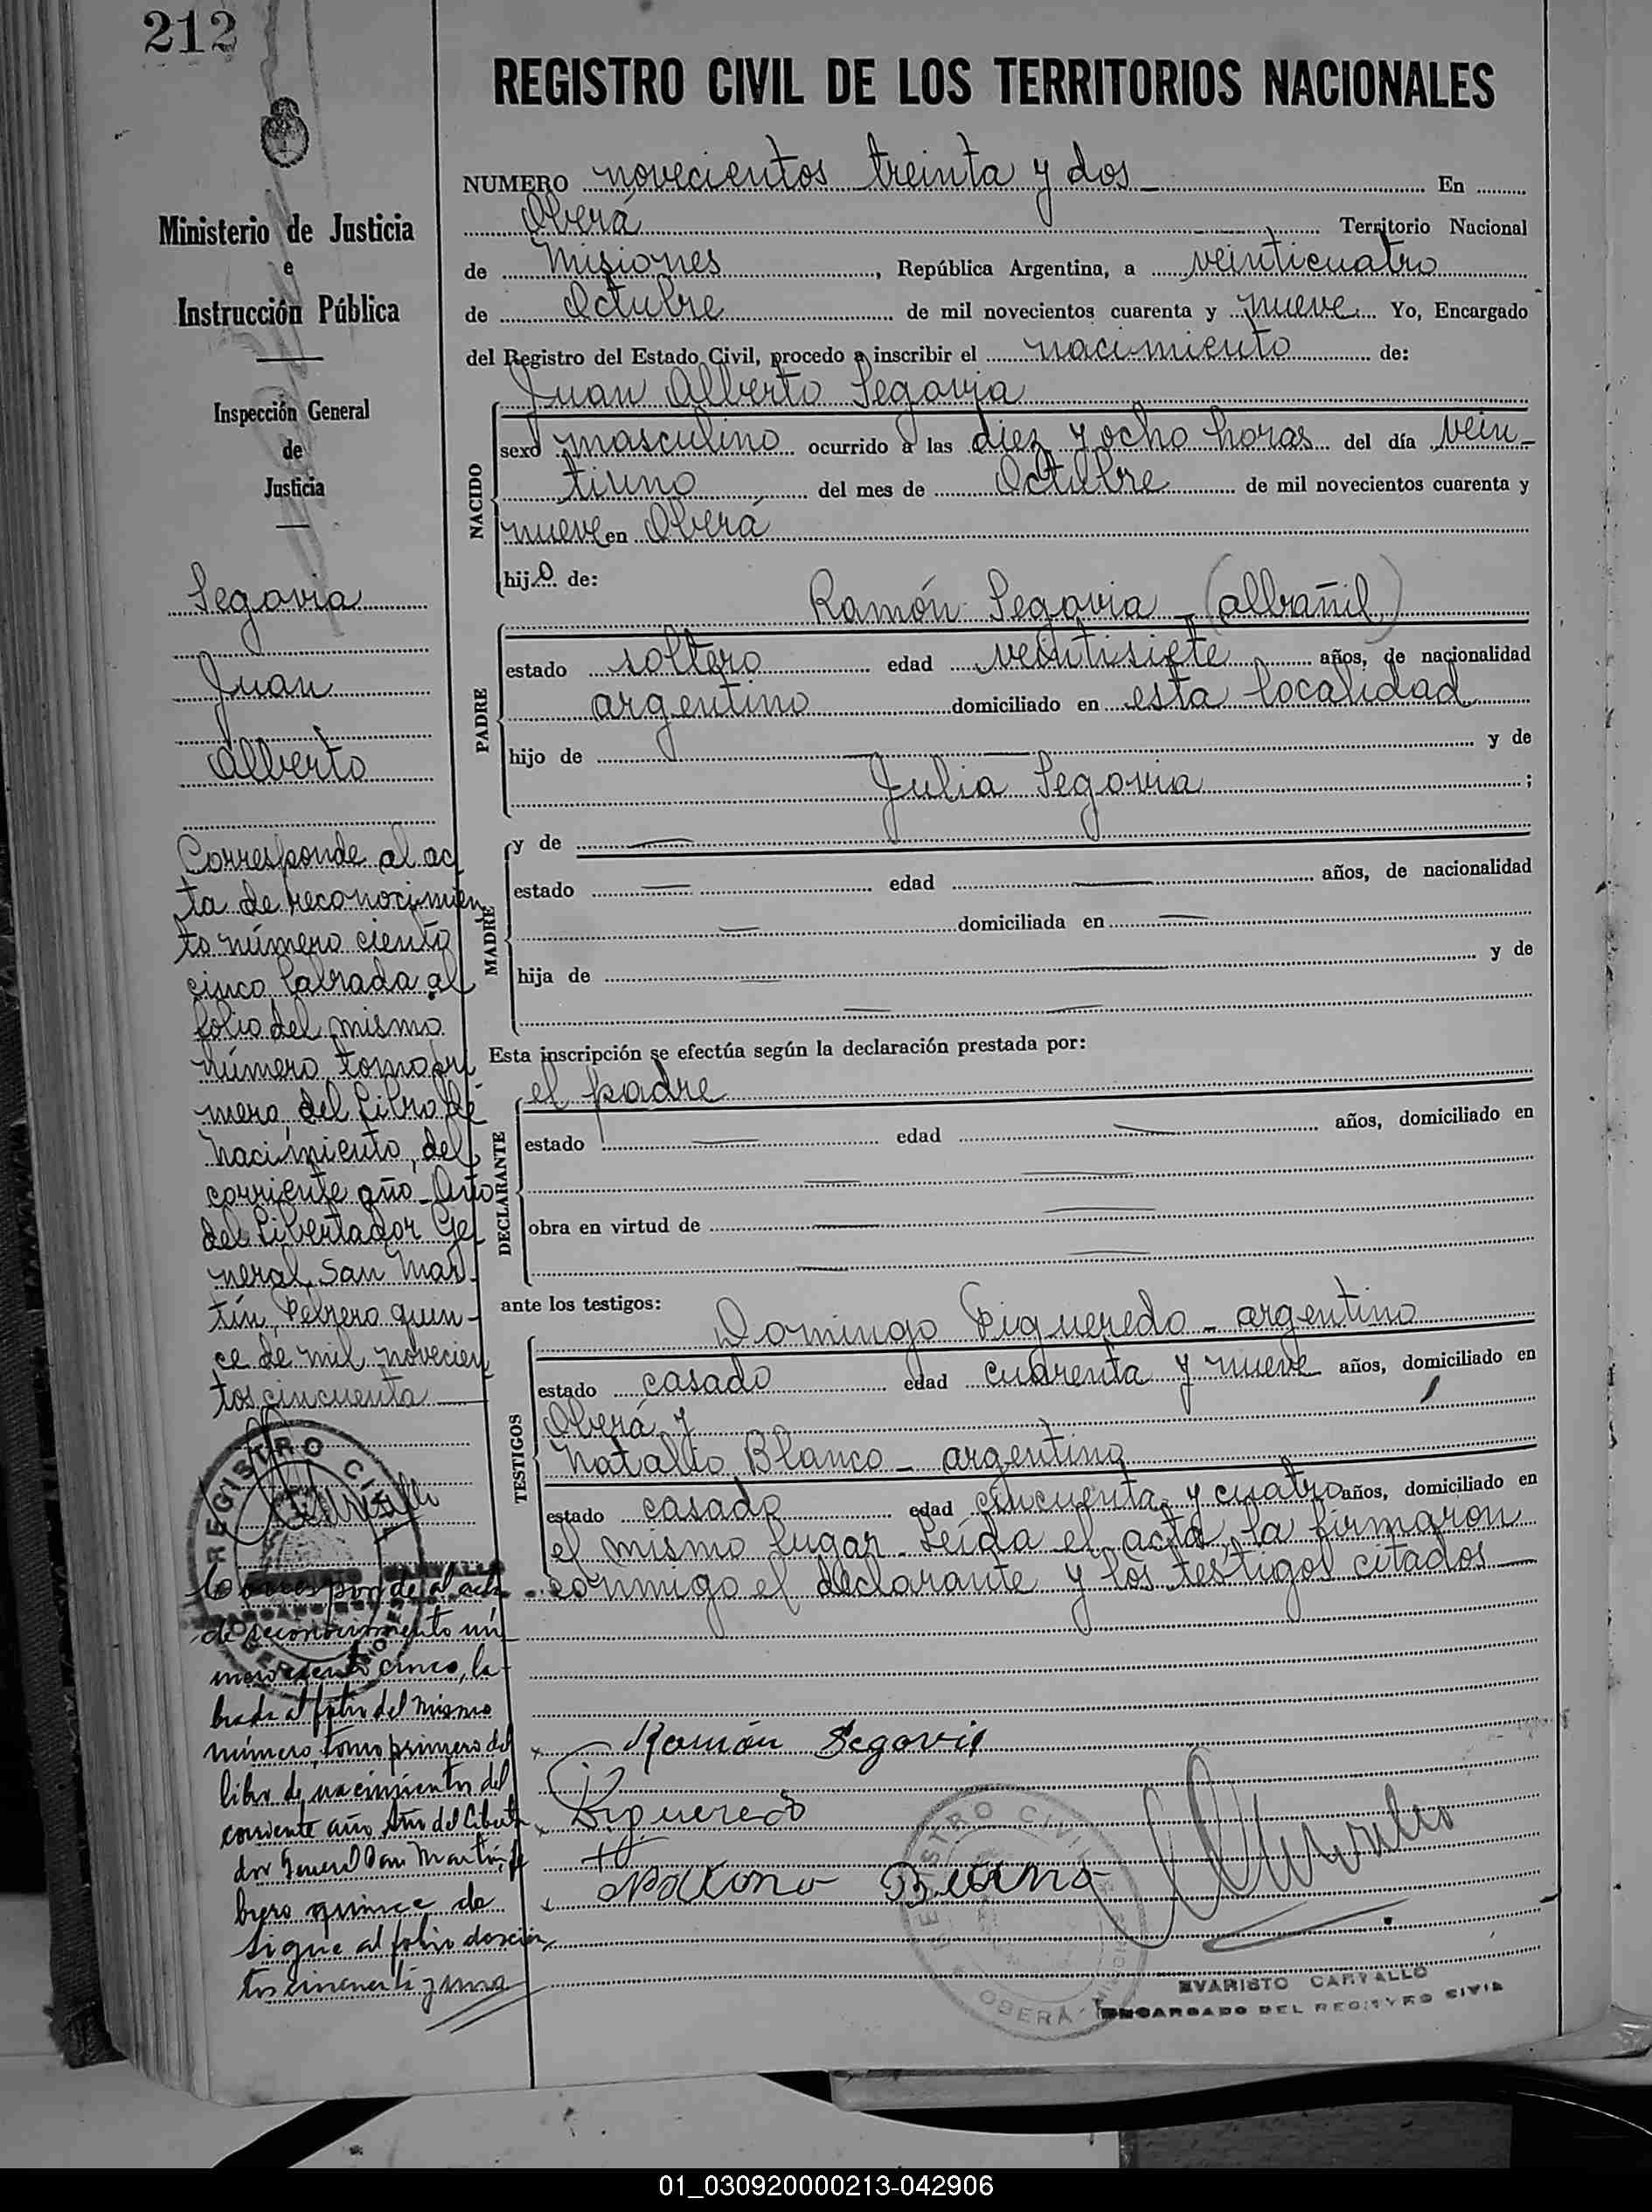 212
REGISTRO CIVIL DE LOS TERRITORIOS NACIONALES
Ministerio de Justicia
e
Instrucción Pública
Inspección General
de
Justicia
Segovia
Juan
Alberto
Corresponde al ac
ta de reconocimien
to número ciento
cinco labrada al
folio del mismo
número tomo pri
mero del libro de
nacimiento, del
corriente año - Año
del Libertador Ge
neral San Mar-
tín, Febrero quin-
ce de mil novecien
tos cincuenta
REGISTRO CIVIL
Corresponde al acta
de reconocimiento nú
mero ciento cinco, la-
brada al folio del mismo
número, tomo primero del
libro de nacimientos del
corriente año, Año del Liberta
dor General San Martín, fe
brero quince de
sigue al folio doscien
tos cincuenta y uno
NUMERO novecientos treinta y dos En
Oberá Territorio Nacional
de Misiones, República Argentina, a veinticuatro
de Octubre de mil novecientos cuarenta y nueve Yo, Encargado
del Registro del Estado Civil, procedo a inscribir el nacimiento de:
Juan Alberto Segovia
NACIDO
sexo masculino ocurrido a las diez y ocho horas del día vein-
tiuno del mes de Octubre de mil novecientos cuarenta y
nueve en Oberá
hijo de:
Ramón Segovia - (albañil)
PADRE
estado soltero edad veintisiete años, de nacionalidad
argentino domiciliado en esta localidad
hijo de y de
Julia Segovia ;
MADRE
y de
estado edad años, de nacionalidad
domiciliada en
hija de y de
Esta inscripción se efectúa según la declaración prestada por:
el padre
DECLARANTE
estado edad años, domiciliado en
obra en virtud de
ante los testigos:
Domingo Figueredo - argentino
TESTIGOS
estado casado edad cuarenta y nueve años, domiciliado en
Oberá y
Natalio Blanco - argentino
estado casado edad cincuenta y cuatro años, domiciliado en
el mismo lugar. Leída el acta, la firmaron
conmigo el declarante y los testigos citados
Ramón Segovia
Figueredo
REGISTRO CIVIL
OBERÁ - MISIONES
EVARISTO CARVALLO
ENCARGADO DEL REGISTRO CIVIL
01_030920000213-042906